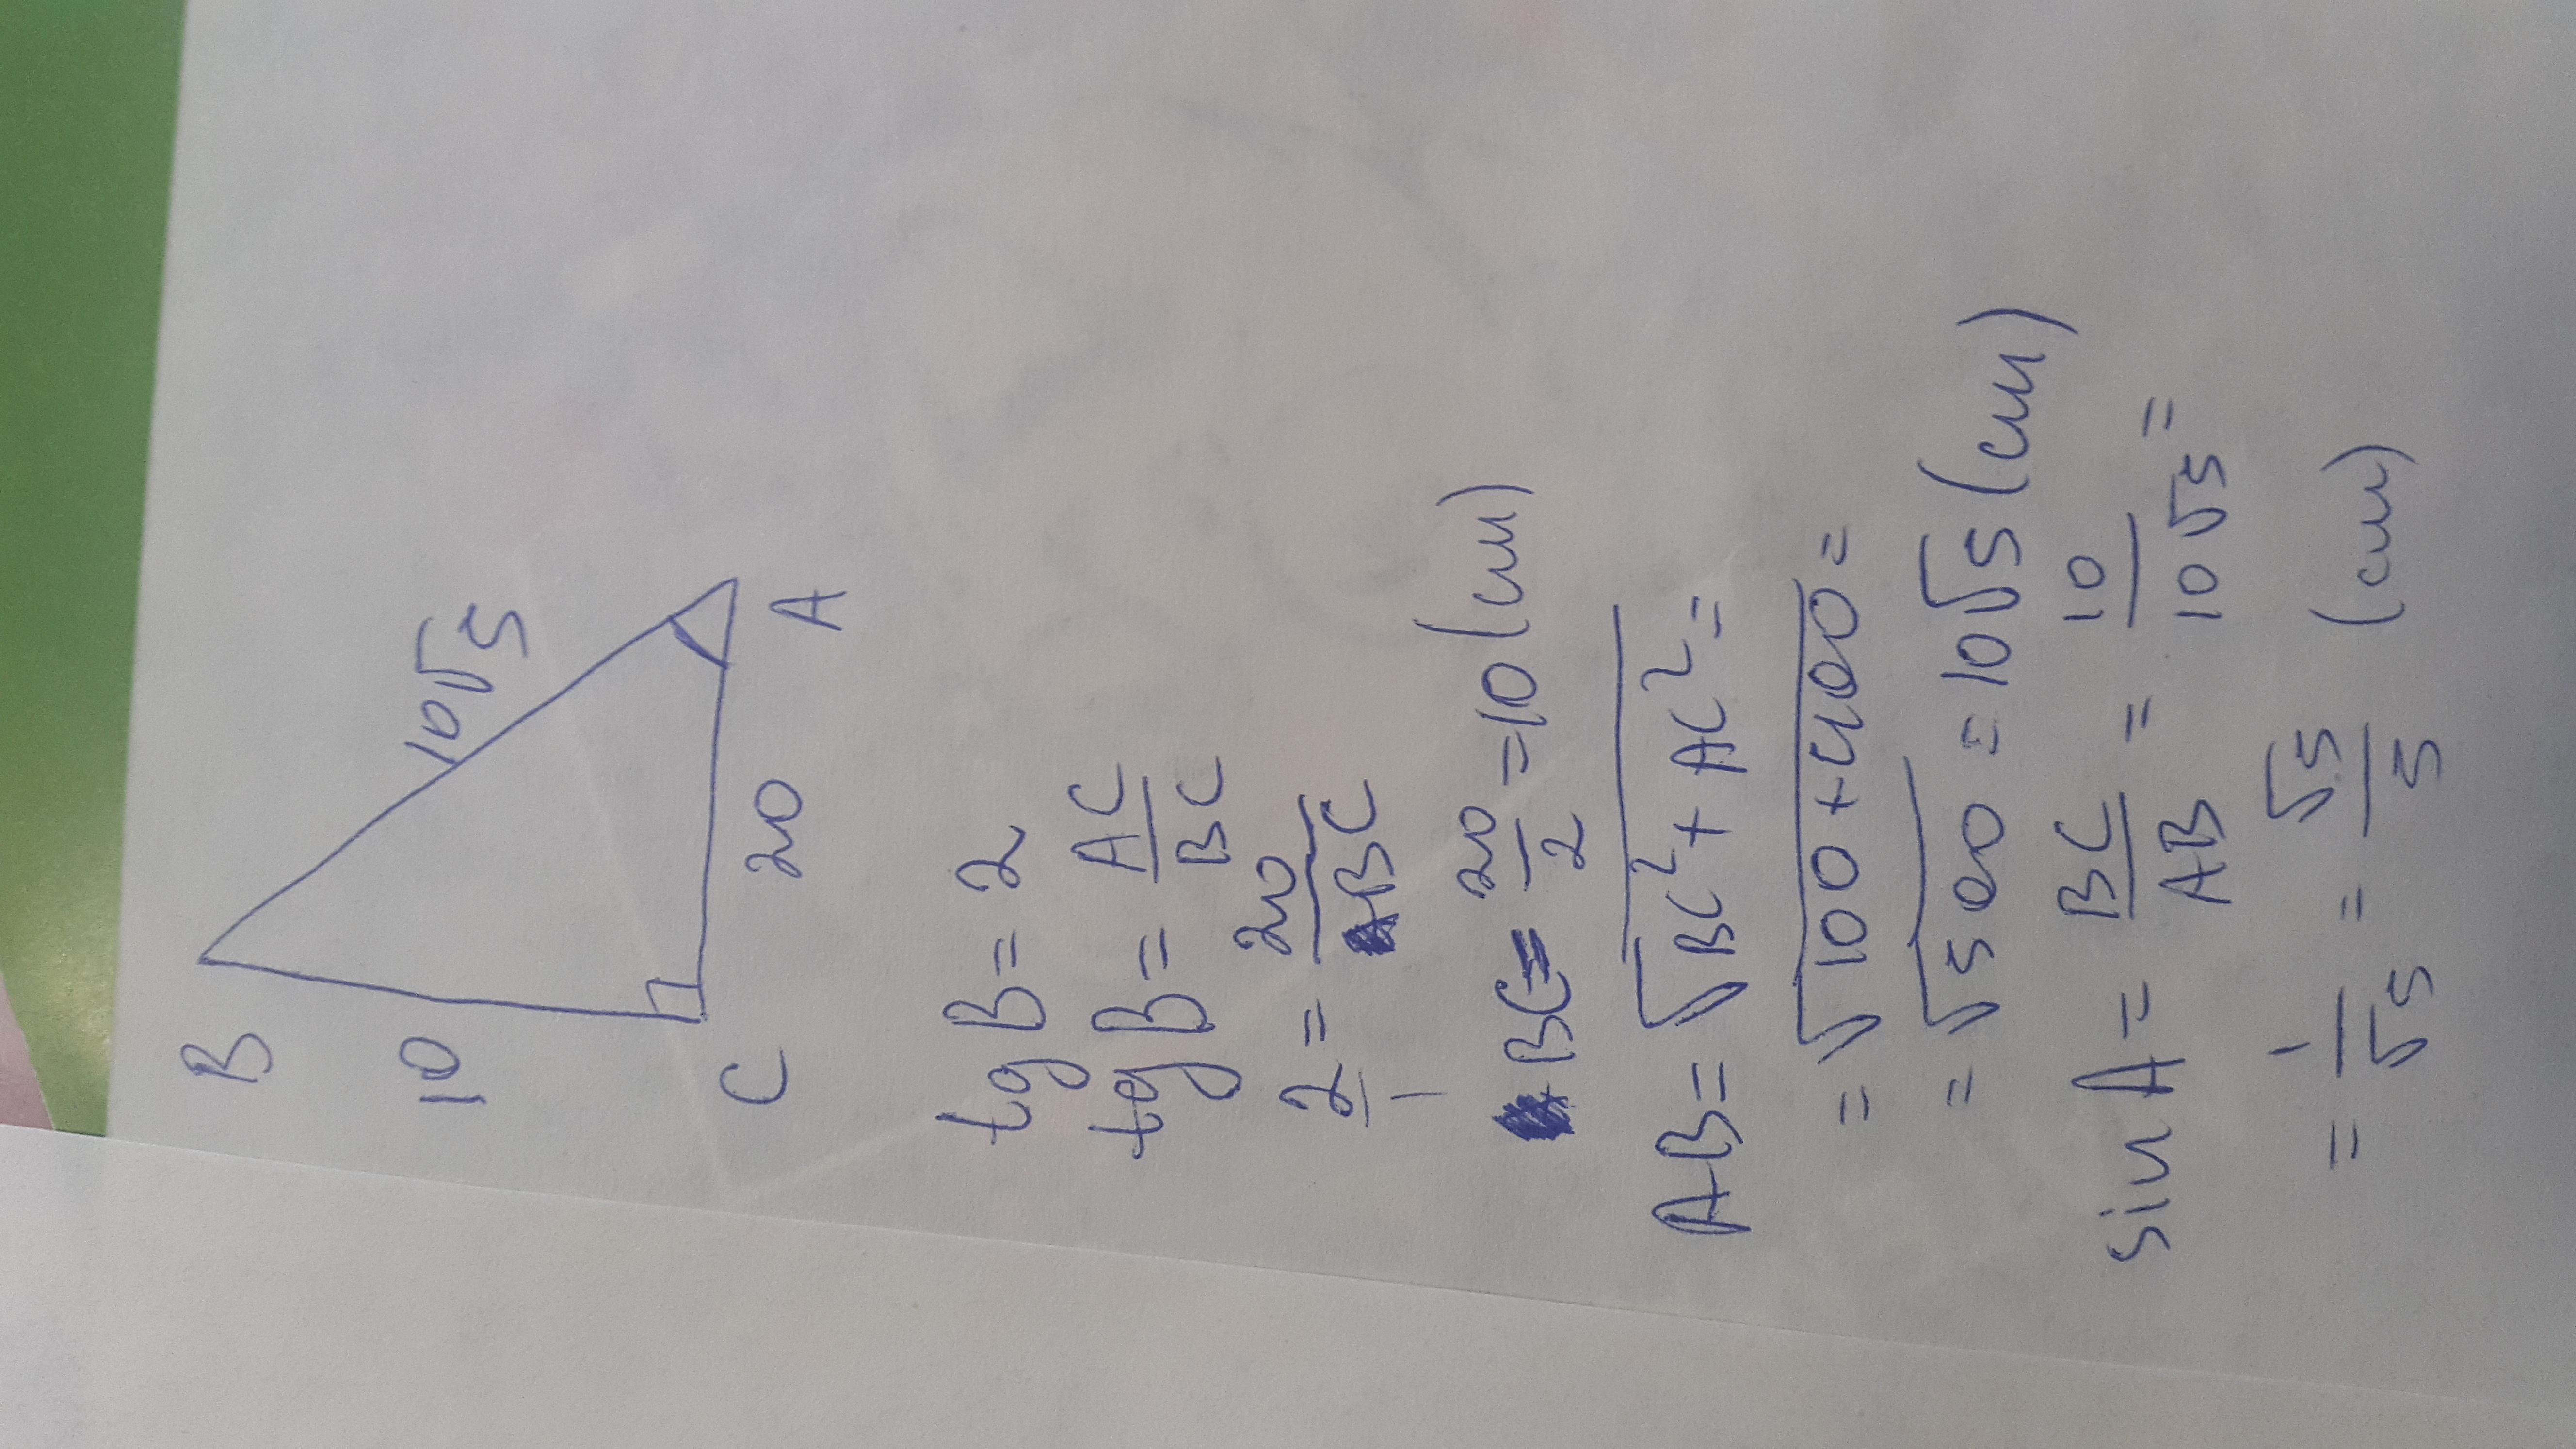 B
10
10√5
C
20
A
tg B = 2
tg B = AC/BC
2/1 = 20/BC
BC = 20/2 = 10 (см)
AB = √BC² + AC² =
= √100 + 400 =
= √500 = 10√5 (см)
sin A = BC/AB = 10/10√5 =
= 1/√5 = √5/5 (см)